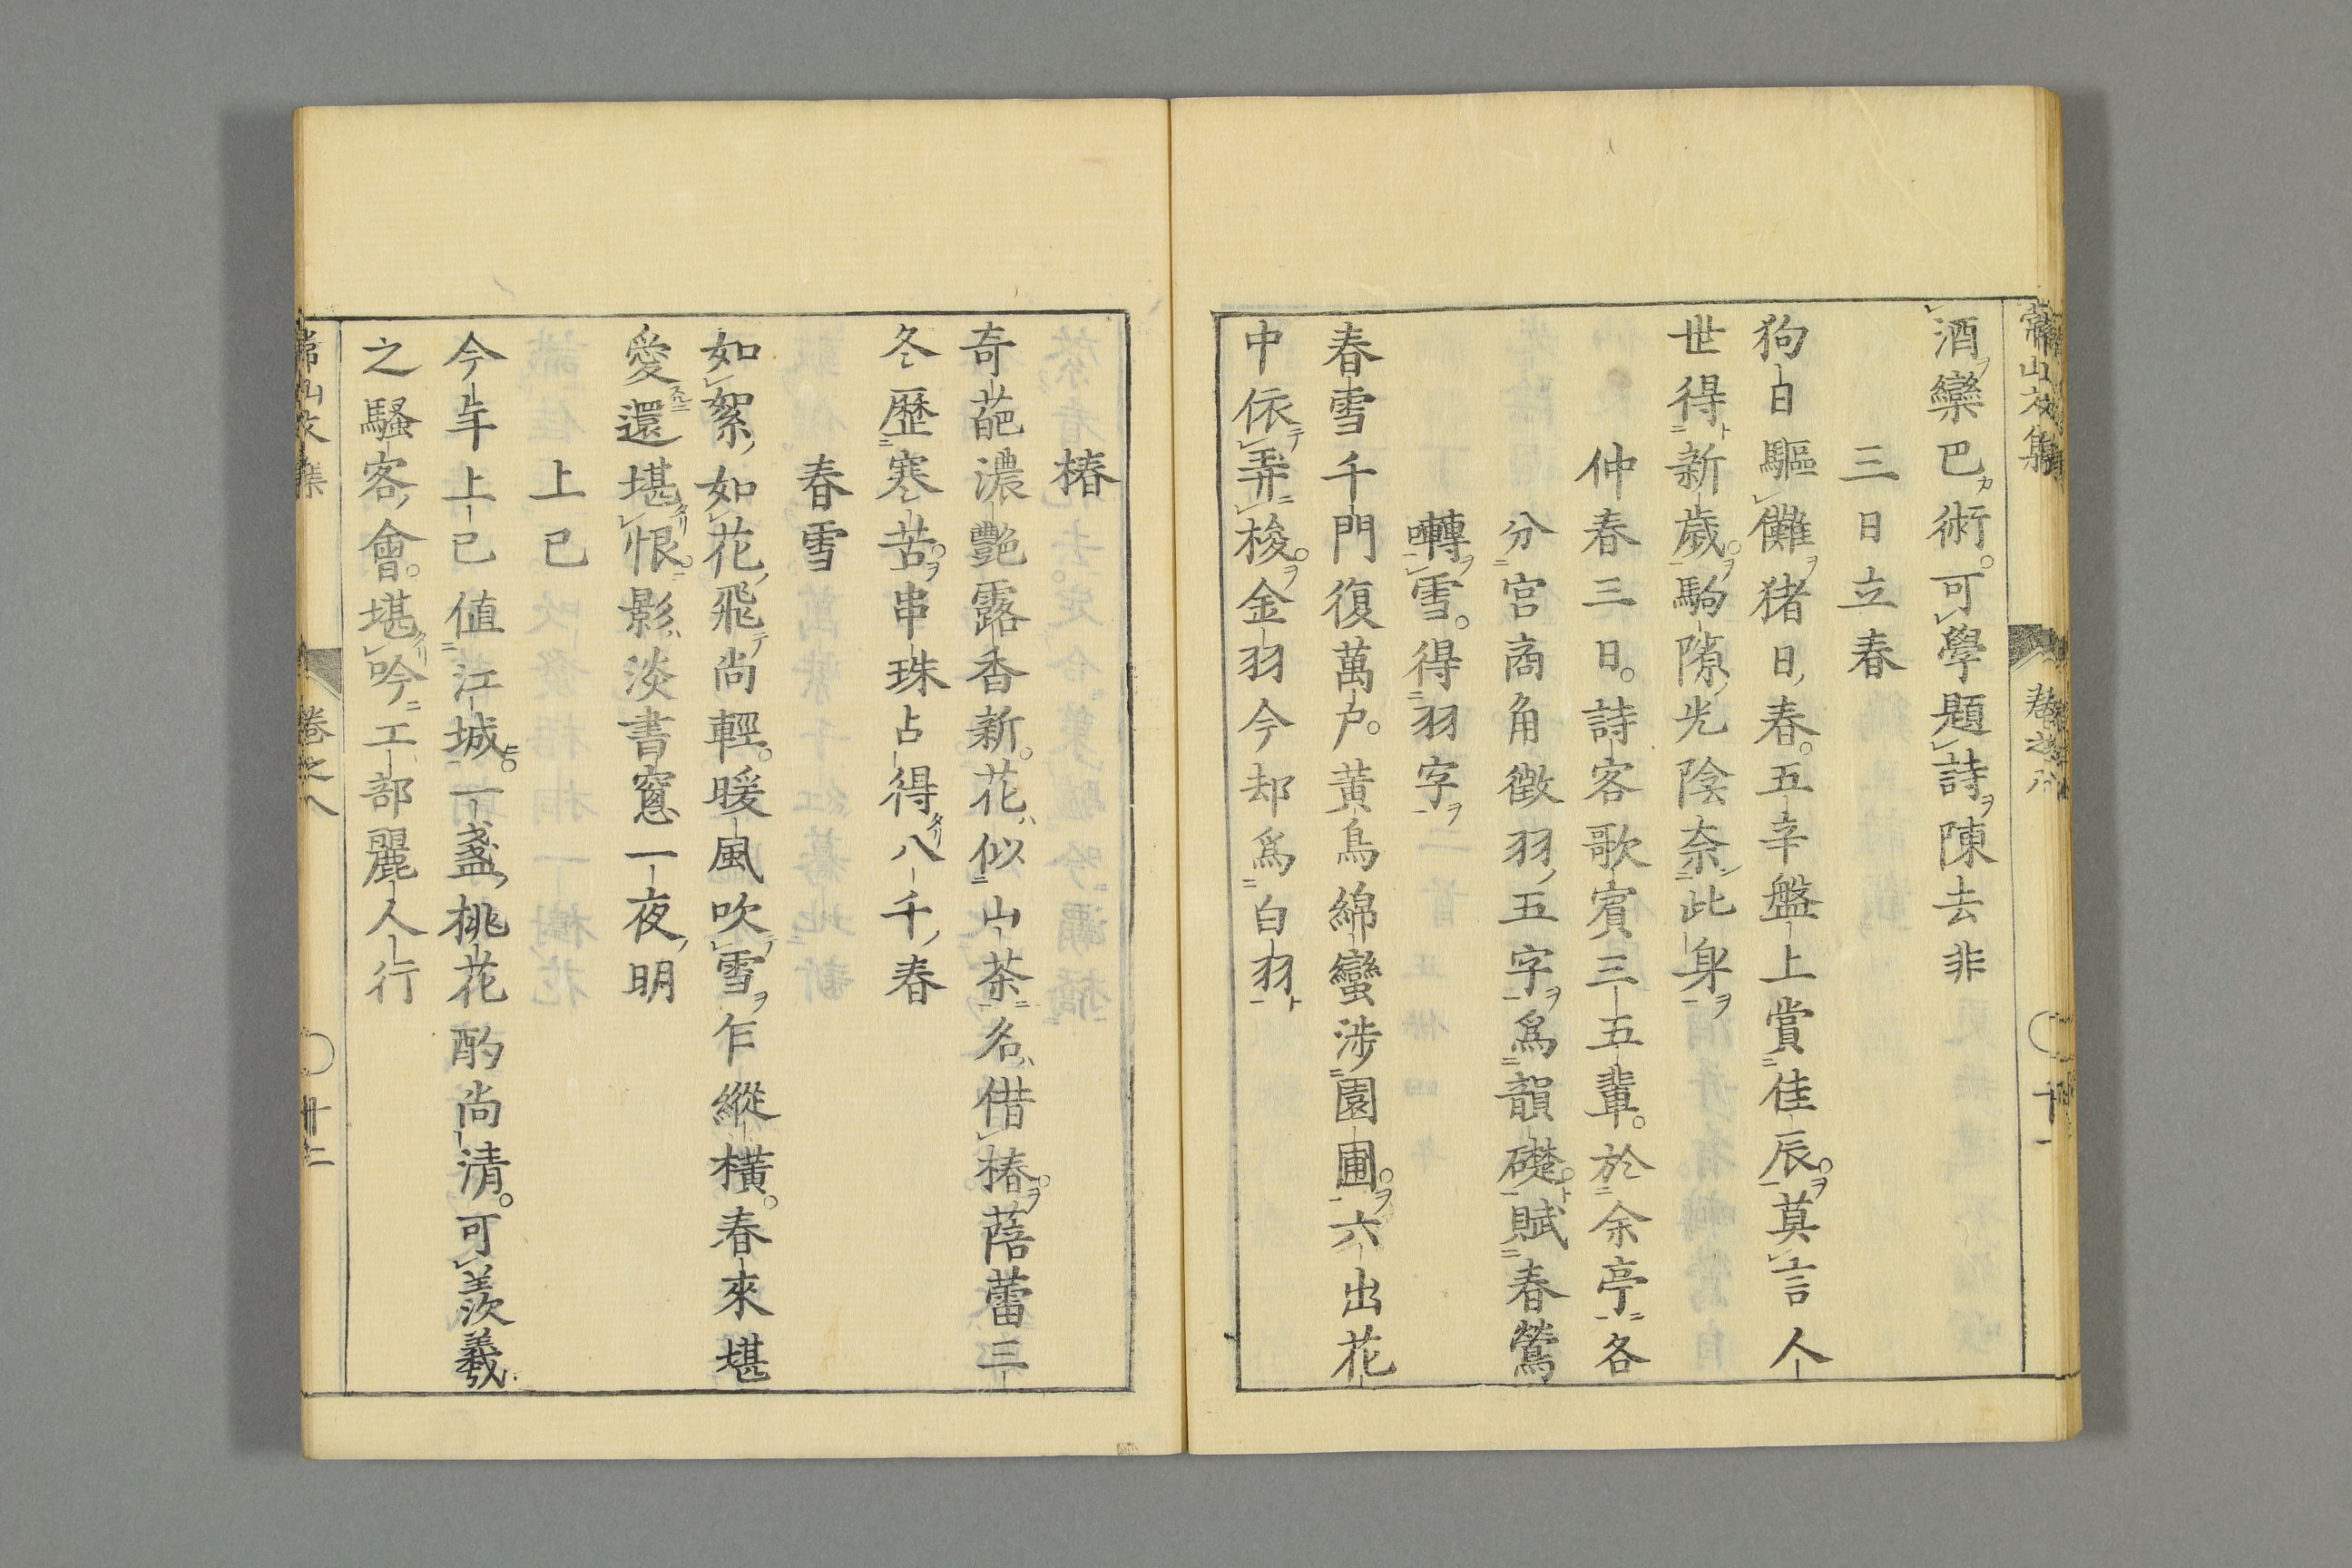 常山文集
卷之八
十一
酒欒巴術。可學題詩陳去非
三日立春
狗日驅儺猪日春。五辛盤上賞佳辰。莫言人
世得新歲。駒隙光陰奈此身
仲春三日。詩客歌賓三五輩。於余亭各
分宮商角徵羽五字爲韻礎。賦春鶯
囀雪。得羽字
春雪千門復萬户。黃鳥綿蠻涉園圃。六出花
中依弄梭。金羽今却爲白羽
椿
奇葩濃艷露香新。花似山茶名借椿。蓓蕾三
冬歷寒苦。串珠占得八千春
春雪
如絮如花飛尚輕。暖風吹雪乍縱橫。春來堪
愛還堪恨。影淡書窻一夜明
上巳
今年上巳值江城。一盞桃花酌尚清。可羨羲
之騷客會。堪吟工部麗人行
常山文集
卷之八
十二